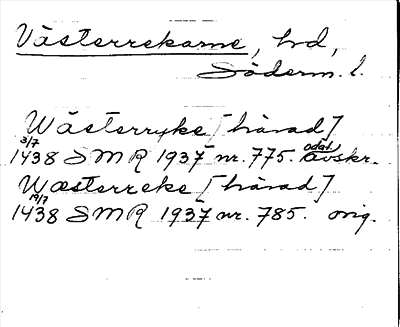 Västerrekarne, hd,
Söderm. l.
Wästerryke [härad]
3/7 1438 SMR 1937 nr. 775. avskr.
Wæsterreke [härad]
19/7 1438 SMR 1937 nr. 785. orig.